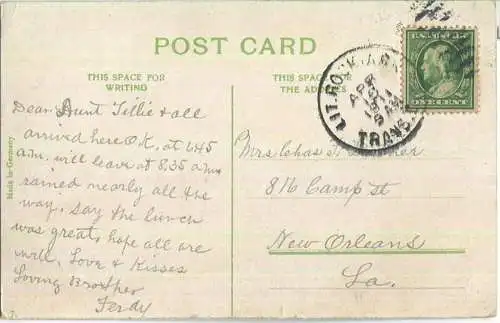 POST CARD
THIS SPACE FOR
WRITING
THIS SPACE FOR
THE ADDRESS
Dear Aunt Tillie & all
arrived here O.K. at 645
a.m. will leave at 8.35 a.m.
rained nearly all the
way, say the lunch
was great, hope all are
well, Love & Kisses
Loving Brother
Ferdy
Made in Germany
LIT. ROCK, ARK.
APR
TRANS.
ONE CENT
Mrs Chas
816 Camp st
New Orleans
La.